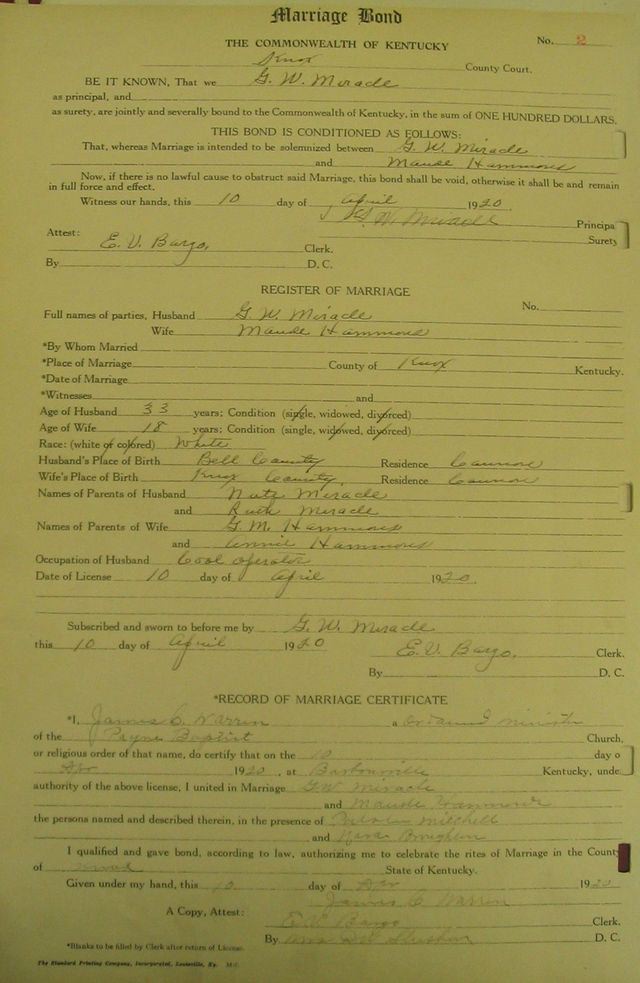 Marriage Bond
THE COMMONWEALTH OF KENTUCKY
No. 2
Knox County Court.
BE IT KNOWN, That we G. W. Miracle
as principal, and
as surety, are jointly and severally bound to the Commonwealth of Kentucky, in the sum of ONE HUNDRED DOLLARS.
THIS BOND IS CONDITIONED AS FOLLOWS:
That, whereas Marriage is intended to be solemnized between G. W. Miracle
and Maude Hammons
Now, if there is no lawful cause to obstruct said Marriage, this bond shall be void, otherwise it shall be and remain
in full force and effect.
Witness our hands, this 10 day of April 1920
G. W. Miracle Principa
Surety
Attest:
E. V. Bargo, Clerk.
By D. C.
REGISTER OF MARRIAGE
No.
Full names of parties, Husband G. W. Miracle
Wife Maude Hammons
*By Whom Married
*Place of Marriage County of Knox Kentucky.
*Date of Marriage
*Witnesses and
Age of Husband 33 years; Condition (single, widowed, divorced)
Age of Wife 18 years; Condition (single, widowed, divorced)
Race: (white or colored) White
Husband's Place of Birth Bell County Residence Cannon
Wife's Place of Birth Knox County, Residence Cannon
Names of Parents of Husband Nute Miracle
and Ruth Miracle
Names of Parents of Wife G. M. Hammons
and Annie Hammons
Occupation of Husband Coal operator
Date of License 10 day of April 1920.
Subscribed and sworn to before me by G. W. Miracle
this 10 day of April 1920 E. V. Bargo, Clerk.
By D. C.
*RECORD OF MARRIAGE CERTIFICATE
*I, James C. Warren a ordained minister
of the Payne Baptist Church,
or religious order of that name, do certify that on the 10 day o
Apr 1920, at Barbourville Kentucky, unde
authority of the above license, I united in Marriage G W Miracle
and Maude Hammons
the persons named and described therein, in the presence of Mitchell
and
I qualified and gave bond, according to law, authorizing me to celebrate the rites of Marriage in the County
of State of Kentucky.
Given under my hand, this 10 day of Apr 1920
James C Warren
A Copy, Attest:
E V Bargo Clerk.
By D. C.
*Blanks to be filled by Clerk after return of License.
The Standard Printing Company, Incorporated, Louisville, Ky.